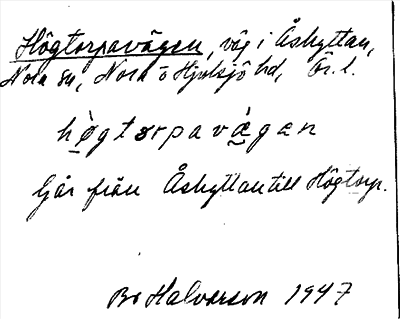 Högtorpavägen, väg i Åshyttan,
Nora sn, Nora o Hjulsjö hd, Ör. l.
hògtorpavä́gan
Går från Åshyttan till Högtorp.
Bo Halvarson 1947